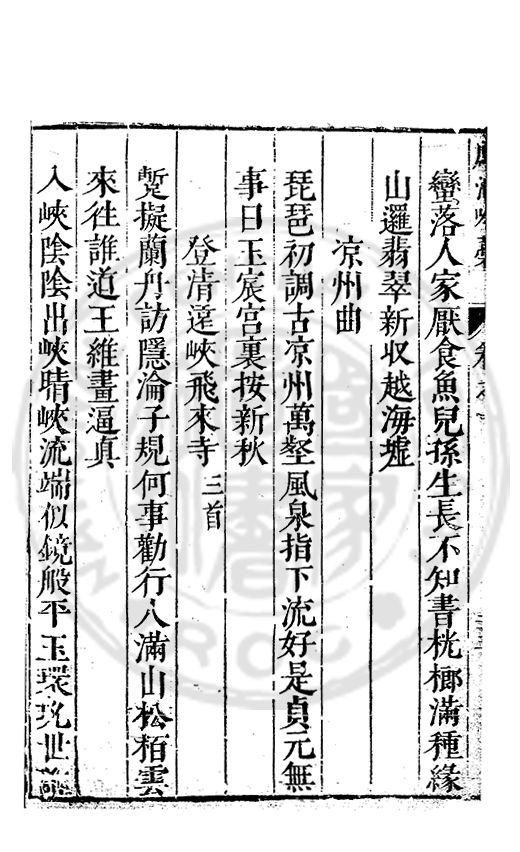 蠻落人家厭食魚兒孫生長不知書桄榔滿種緣
山邏翡翠新収越海墟
凉州曲
琵琶初調古凉州萬壑風泉指下流好是貞元無
事日玉宸宫裏按新秋
登清遠峽飛來寺三首
蹔擬蘭丹訪隱淪子規何事勸行人滿山松栢雲
來徃誰道王維畫逼真
入峽陰陰出峽晴峽流端似鏡般平玉環 世